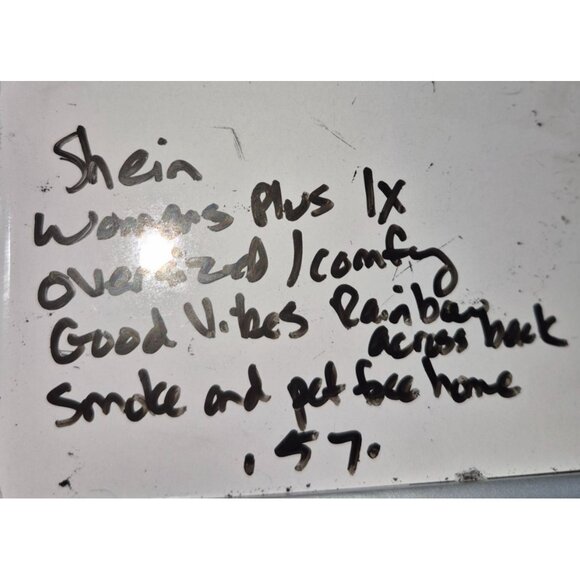 Shein
Womens Plus 1x
oversized / comfy
Good Vibes Rainbow
across back
Smoke and pet free home
.57.